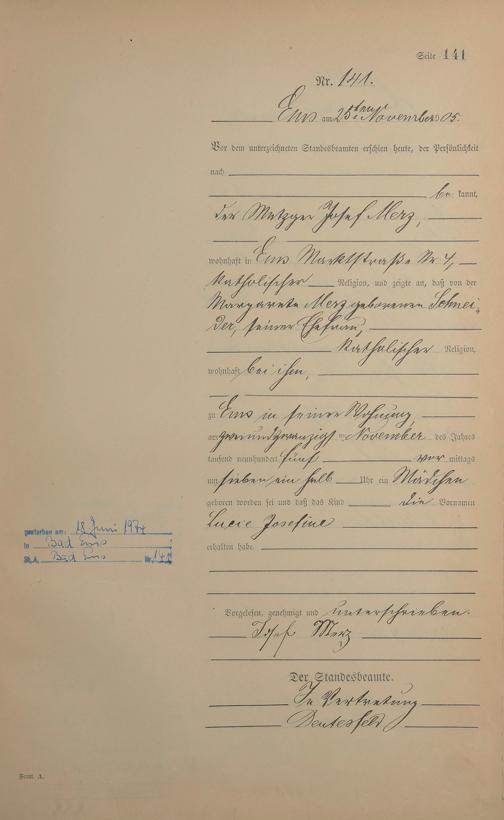 Seite 141
Nr. 141.
Ems am 25ten November 05.
Vor dem unterzeichneten Standesbeamten erschien heute, der Persönlichkeit
nach
be kannt,
der Metzger Josef Merz,
wohnhaft in Ems Marktstraße Nr 4,
katholischer Religion, und zeigte an, daß von der
Margareta Merz geborenen Schnei-
der, seiner Ehefrau,
katholischer Religion,
wohnhaft bei ihm,
zu Ems in seiner Wohnung,
am November des Jahres
tausend neunhundert fünf vor mittags
um sieben ein halb Uhr ein Mädchen
geboren worden sei und daß das Kind die Vornamen
Lucie Josefine
erhalten habe.
gestorben am: 18. Juni 1974
in Bad Ems
St.A. Bad Ems Nr.
Vorgelesen, genehmigt und unterschrieben.
Josef Merz
Der Standesbeamte.
In Vertretung
Form. A.